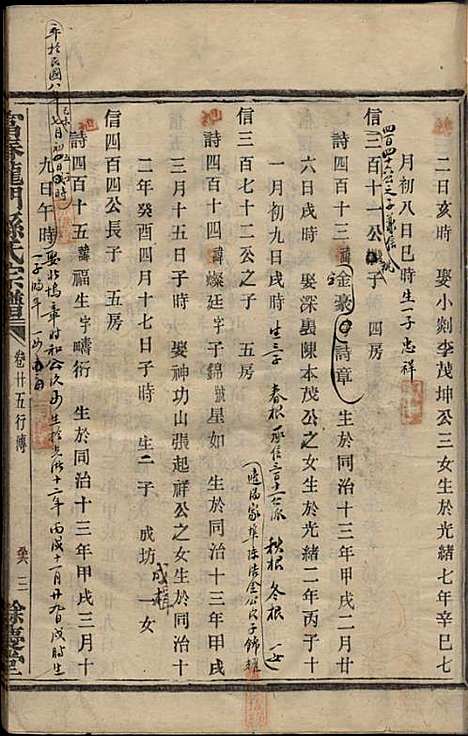 二日亥時　娶小剡李茂坤公三女生於光緒七年辛巳七
月初八日巳時生一子忠祥
信三百十一公子　四房
詩四百十三諱金豪詩章　生於同治十三年甲戌二月廿
六日戌時　娶深裏陳本茂公之女生於光緒二年丙子十
一月初九日戌時生三子　春根　承信三百十一公派　秋根　冬根　一女
信三百七十二公之子　五房
詩四百十四諱燦廷字子錦號星如　生於同治十三年甲戌
三月十五日午時　娶神功山張起祥公之女生於同治十
二年癸酉四月十七日子時　生二子　成坊　成楫　一女
信四百四公長子　五房
詩四百十五諱福生字疇衍　生於同治十三年甲戌三月十
九日午時
生於光緒十二年丙戌十一月廿九日戌時生
富春龍門孫氏宗譜
卷廿五行傳
餘慶堂